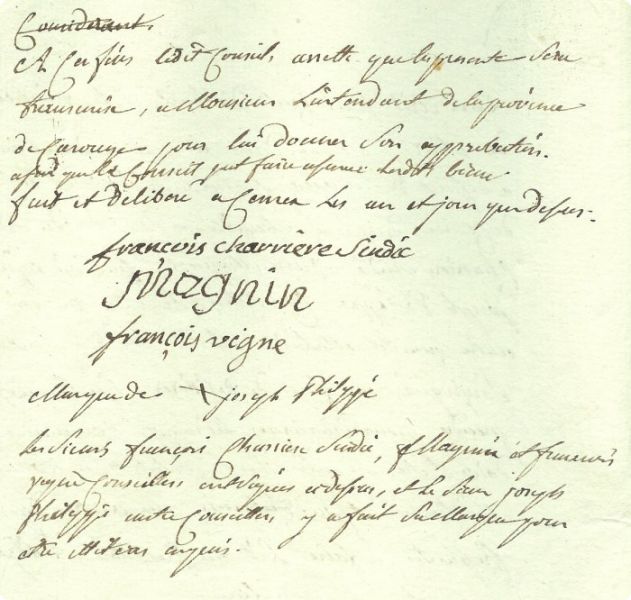 Considerant
A Ces fins ledit Conseil arrette que la presente Sera
transmise, a Monsieur L'intendant de la province
de Carouge pour lui donner Son approbation.
afin que le Conseil put faire lesdits biens
fait et Délibéré a Cernex Les an et jour que dessus.
françois charriere Sindic
f magnin
françois vigne
Marque de X joseph Philippe
les Sieurs françois Charriere Sindic, f Magnin et francois
vigne Conseillers ont Signés cy dessus, et le Sieur joseph
Philippe autre Conseiller y a fait Sa Marque pour
etre illiteré